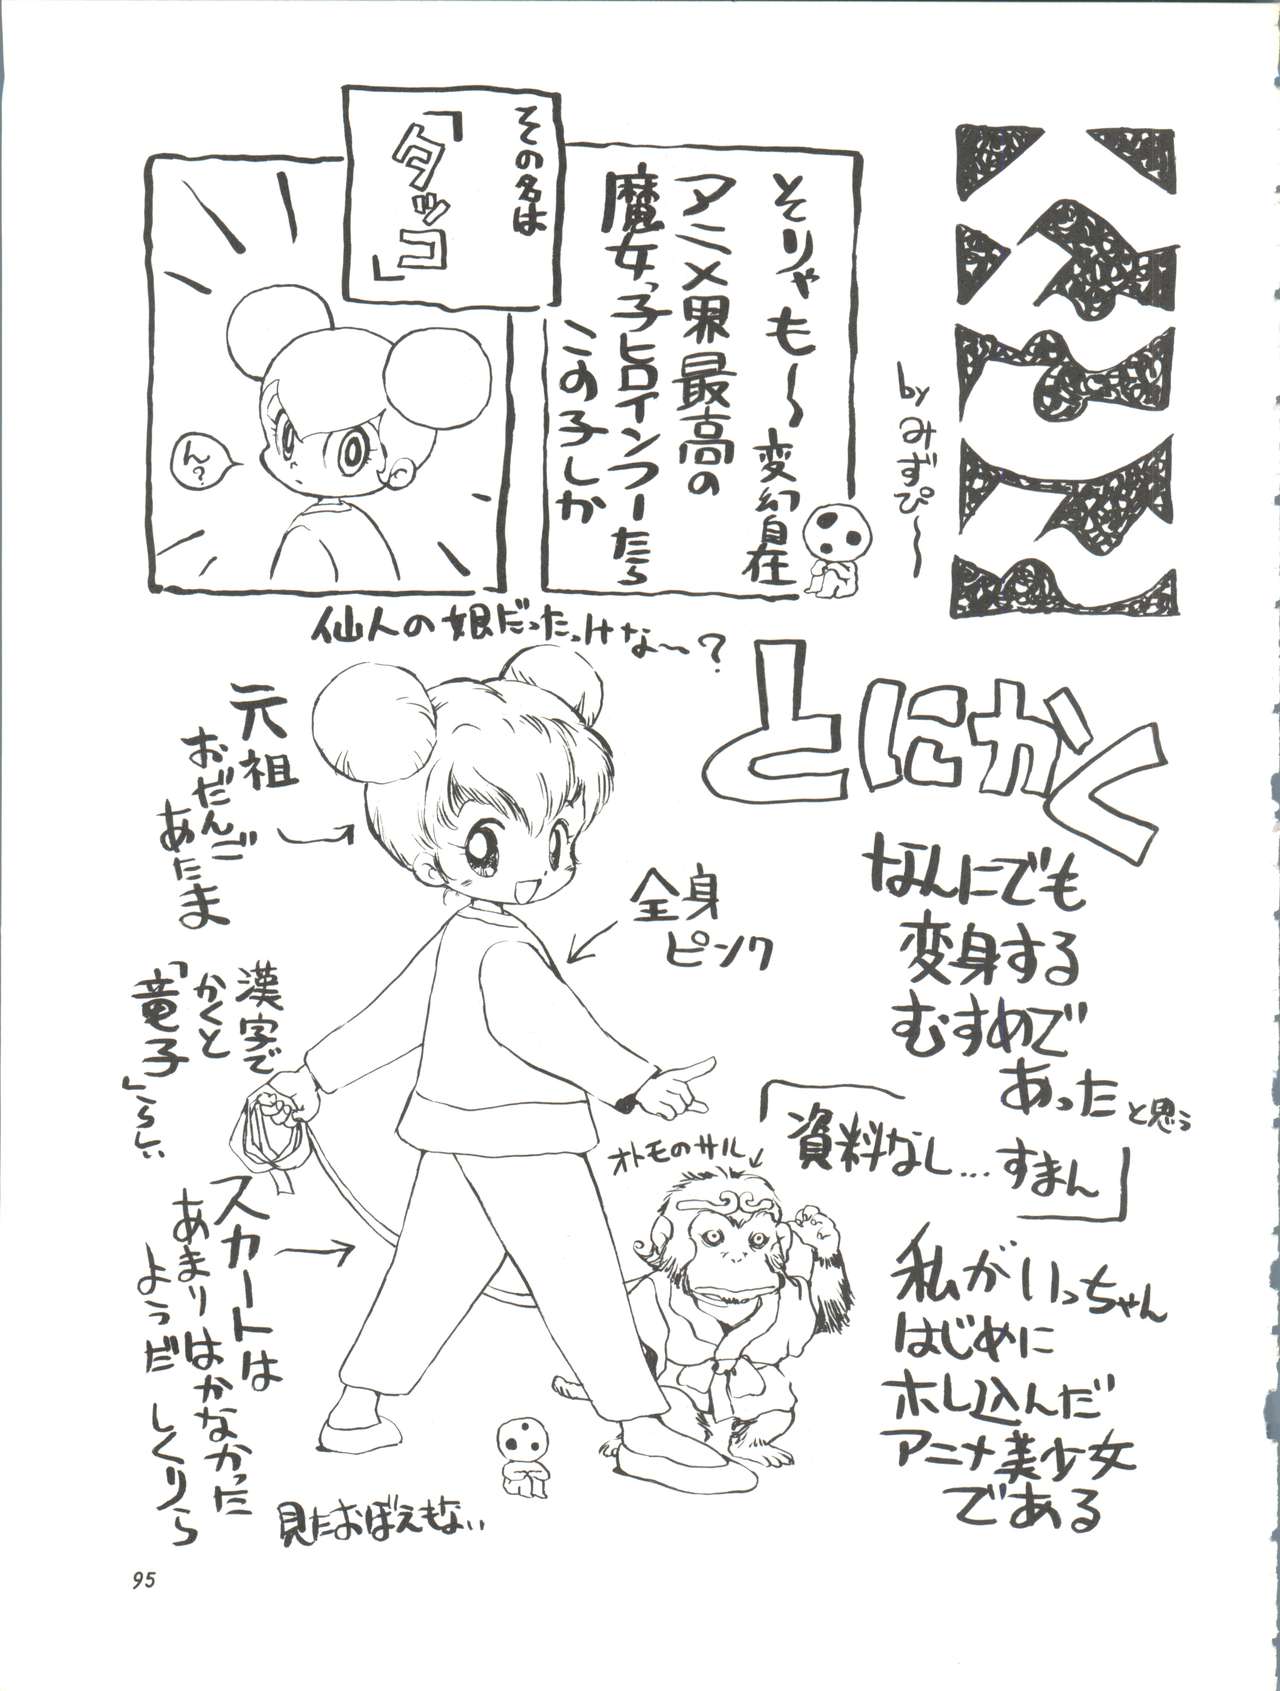 by みずぴ〜
そりゃも〜
変幻自在
アニメ界最高の
魔女っ子ヒロインつーたら
この子しか
その名は
「タッコ」
ん?
仙人の娘だったっけな〜?
とにかく
なんにでも
変身する
むすめで
あったと思う
「資料なし…すまん」
私がいっちゃん
はじめに
ホレ込んだ
アニメ美少女
である
元祖
おだんご
あたま
全身
ピンク
漢字で
かくと
「竜子」らしい
オトモのサル
スカートは
あまりはかなかった
ようだ
見たおぼえもない
95